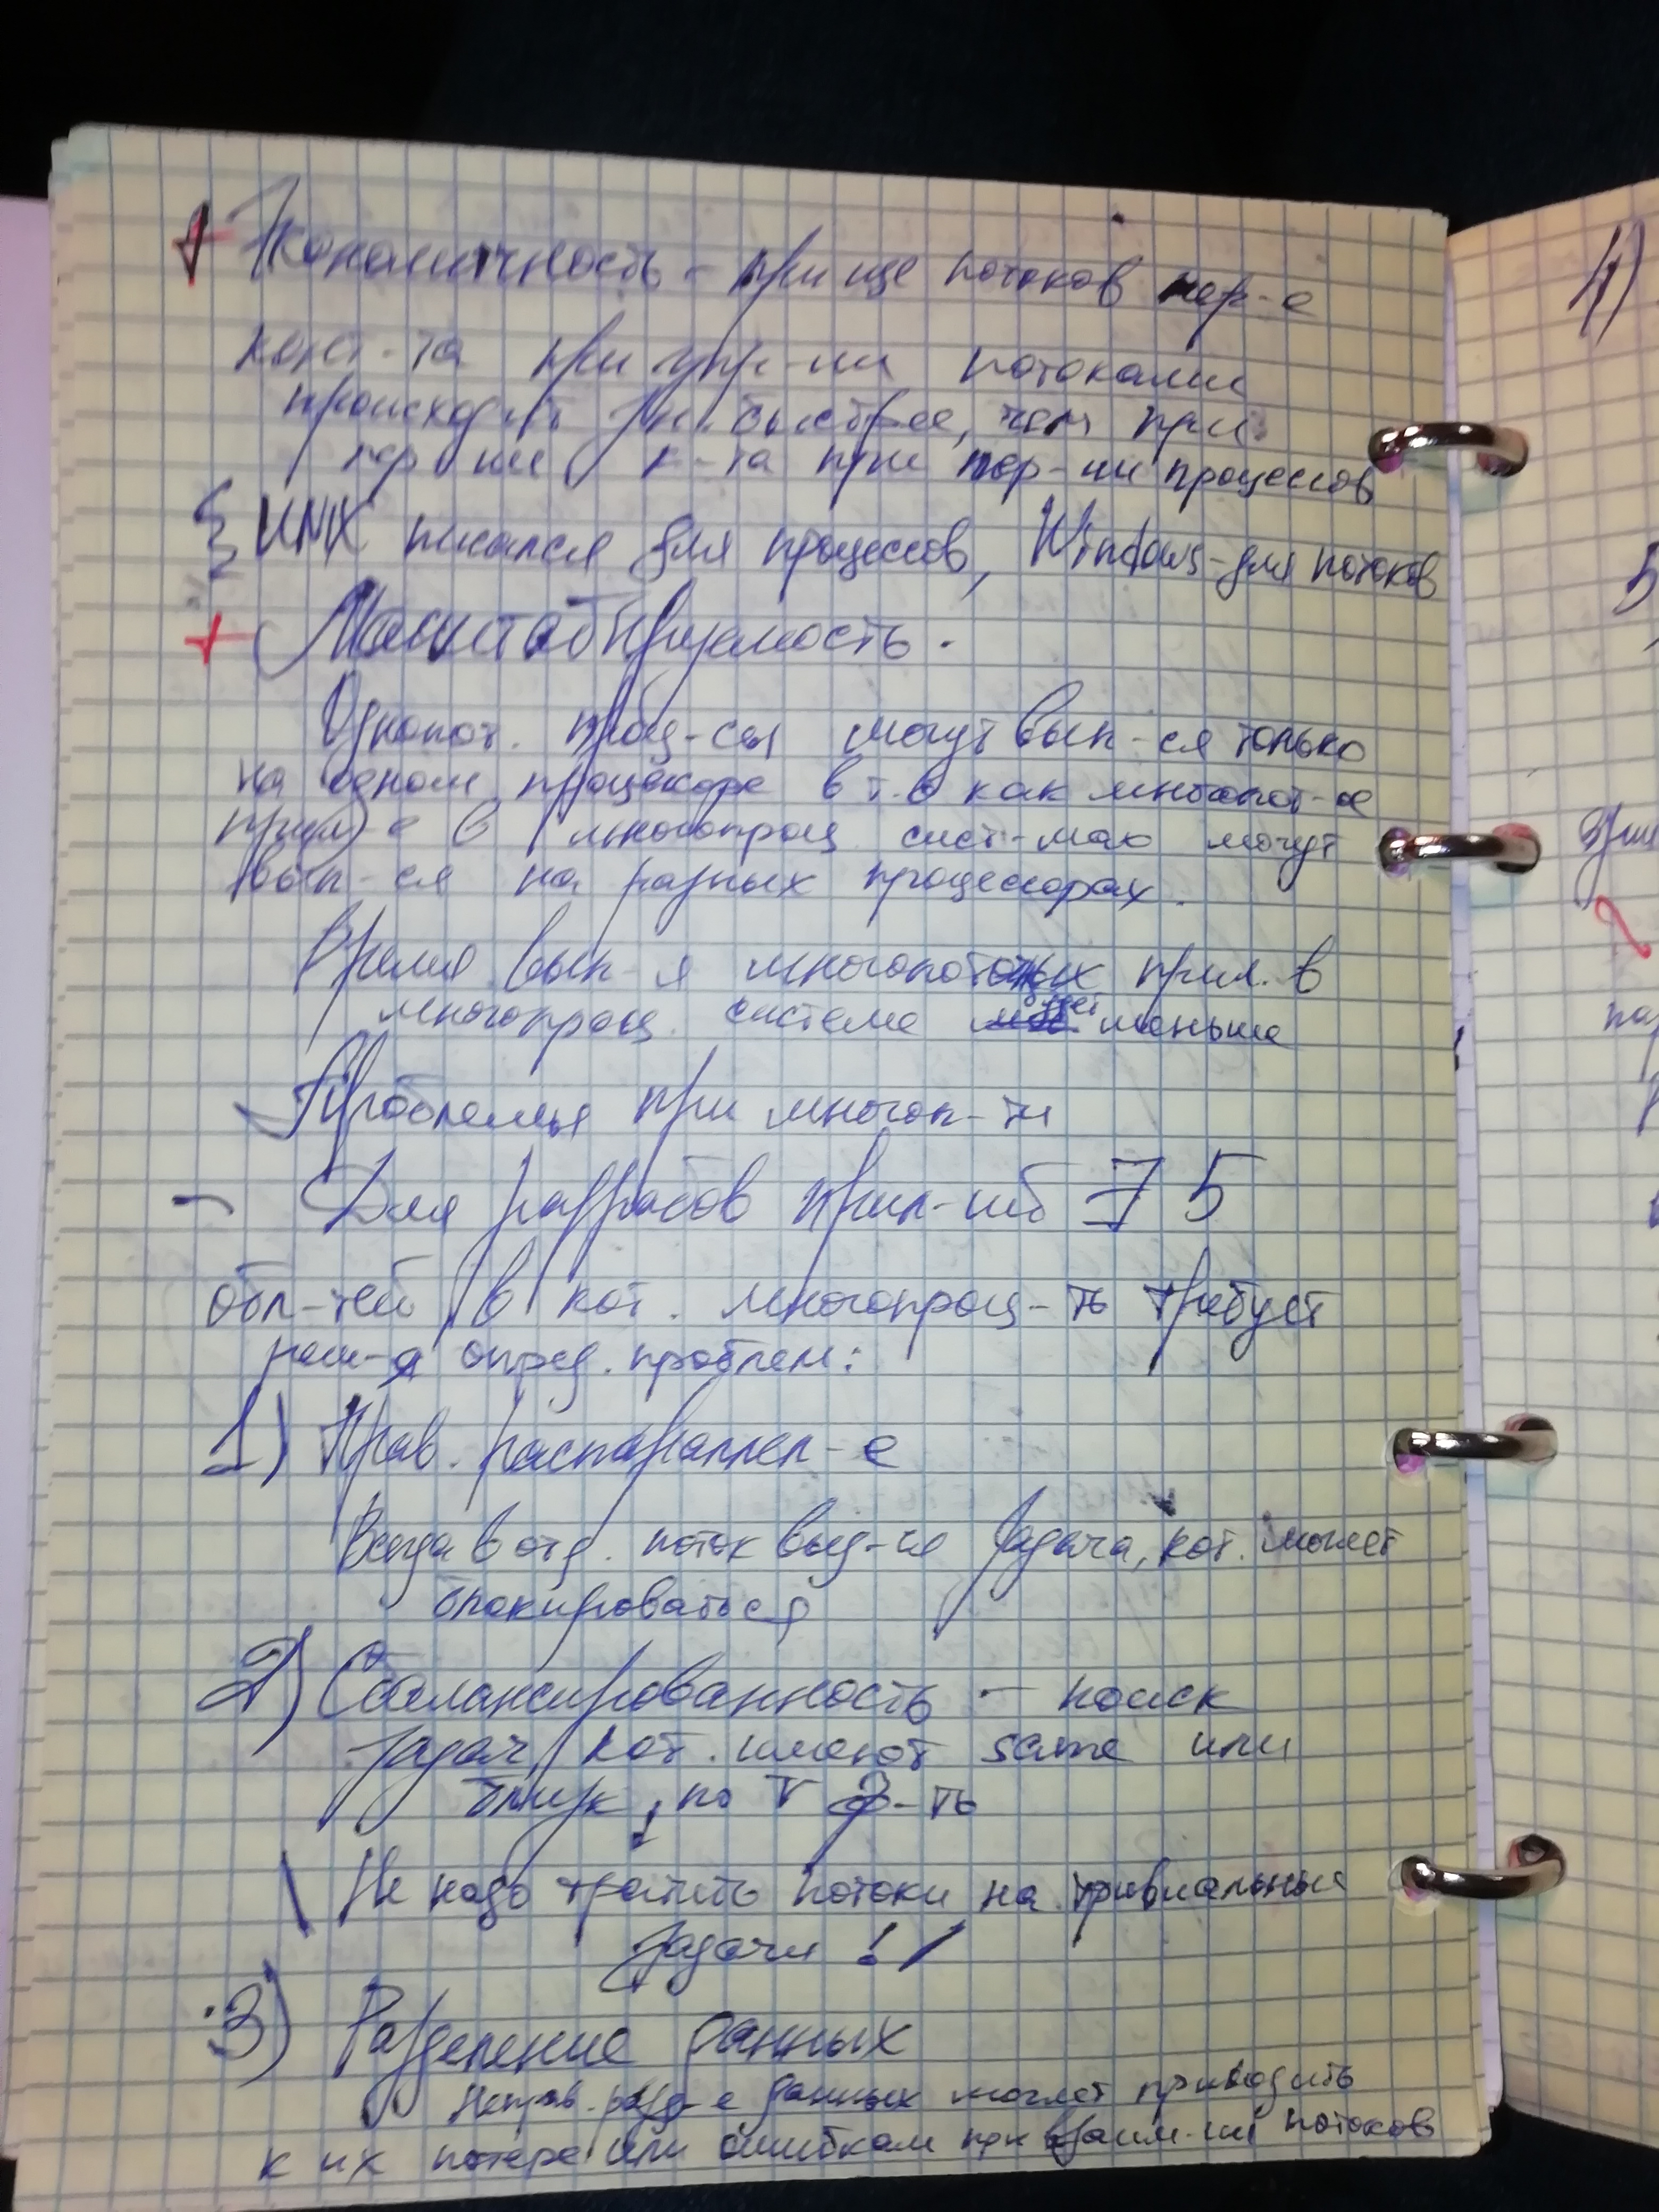 + Экономичность - при ще потоков пер-е
конт-та при упр-ии потоками
происходит зн. быстрее, чем при
пер-ии к-та при пер-ии процессов
UNIX писался для процессов, Windows - для потоков
+ Масштабируемость.
Однопот. проц-сы могут вып-ся только
на одном процессоре в т.в как многопот-ое
прил-е в многопроц. сист-мах могут
вып-ся на разных процессорах.
Время вып-я многопоточных прил. в
многопроц. системе будет меньше
Проблемы при многоп-ти
- Для разрабов прил-ий ∃ 5
обл-тей в кот. многопроц-ть требует
реш-я опред. проблем:
1) Прав. распараллел-е
Всегда в отд. поток выд-ся задача, кот. может
блокироваться
2) Сбалансированность - поиск
задач, кот. имеют same или
близк. по т
Не надо тратить потоки на тривиальные
задачи !
3) Разделение данных
Неправ. разд-е данных может приводить
к их потере или ошибкам при взаим-ии потоков
4)
5